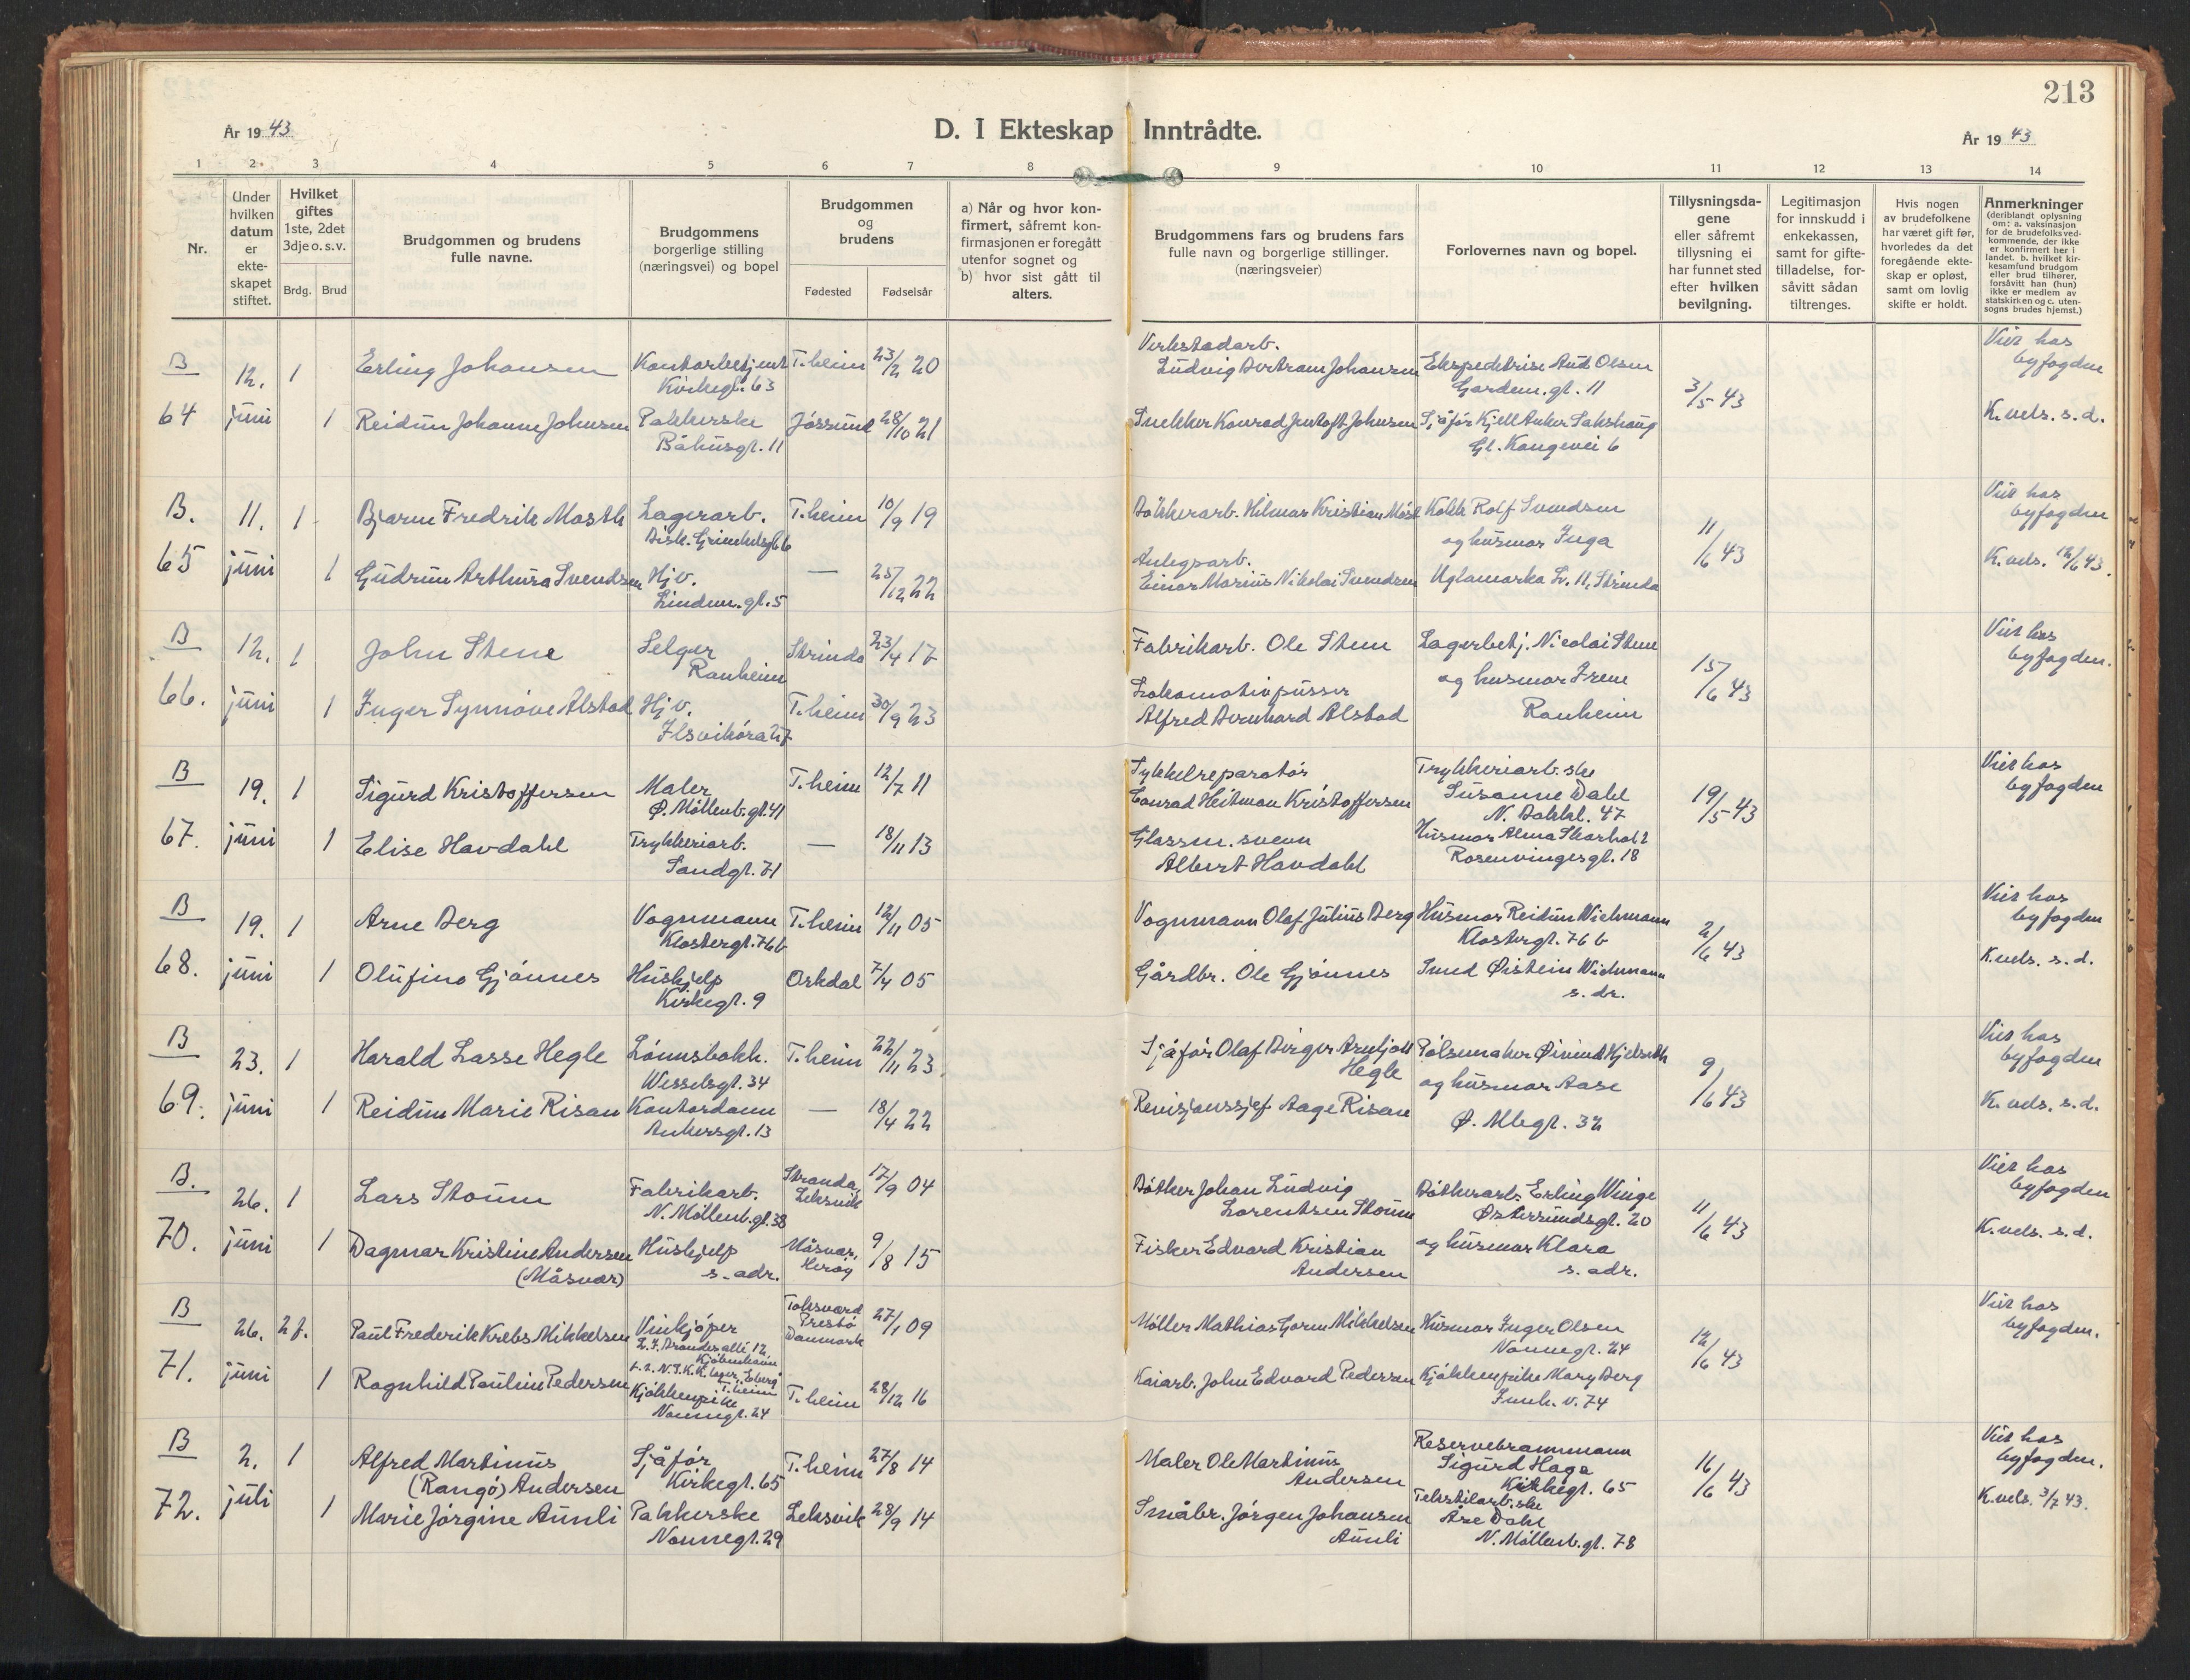 213
År 1943
D. I Ekteskap Inntrådte.
År 1943
1 2 3 4 5 6 7 8 9 10 11 12 13 14
Nr.
Under hvilken datum er ekteskapet stiftet.
Hvilket giftes 1ste, 2det 3dje o. s. v.
Brdg. Brud
Brudgommen og brudens fulle navne.
Brudgommens borgerlige stilling (næringsvei) og bopel
Brudgommen og brudens
Fødested Fødselsår
a) Når og hvor konfirmert, såfremt konfirmasjonen er foregått utenfor sognet og
b) hvor sist gått til alters.
Brudgommens fars og brudens fars fulle navn og borgerlige stillinger. (næringsveier)
Forlovernes navn og bopel.
Tillysningsdagene eller såfremt tillysning ei har funnet sted efter hvilken bevilgning.
Legitimasjon for innskudd i enkekassen, samt for giftetilladelse, forsåvitt sådan tiltrenges.
Hvis nogen av brudefolkene har været gift før, hvorledes da det foregående ekteskap er opløst, samt om lovlig skifte er holdt.
Anmerkninger (deriblandt oplysning om: a. vaksinasjon for de brudefolks vedkommende, der ikke er konfirmert her i landet. b. hvilket kirkesamfund brudgom eller brud tilhører, forsåvitt han (hun) ikke er medlem av statskirken og c. utensogns brudes hjemst.)
B 12. 1 Erling Johansen Kontorbetjent T.heim 23/2 20 Verkstadarb. Ludvig Bertram Johansen Ekspeditrise Aud Olsen 3/5 43 Viet hos byfogden
Kirkegt. 63 Gardem. gt. 11
64 juni 1 Reidun Johanne Johnsen Pakkerske Jøssund 28/10 21 Snekker Konrad Johnsen Sjåfør Kjell Anker Sakshaug K. vels. s. d.
Båhusgt. 11 Gl. Kongevei 6
B. 11. 1 Bjarne Fredrik Mosth Lagerarb. T.heim 10/9 19 Bøkkerarb. Hilmar Kristian Kokk Rolf Svendsen 11/6 43 Viet hos byfogden
Bisk. 6b og husmor Inga
65 juni 1 Gudrun Arthura Svendsen Hjv. — 25/12 22 Anlegsarb. Einar Marius Nikolai Svendsen Uglamarka Lv. 11, Strinda K. vels. 12/6 43.
Lindem. gt. 5
B 12. 1 John Stene Selger Strinda 23/4 17 Fabrikarb. Ole Stene Lagerbetj. Nicolai Stene 15/6 43 Viet hos byfogden.
Ranheim og husmor Irene
66. juni 1 Inger Synnøve Alstad Hjv. T.heim 30/9 23 Lokomotivpusser Alfred Bernhard Alstad Ranheim
Ilsvikøra 27
B 19. 1 Sigurd Kristoffersen Maler T.heim 12/7 11 Sykkelreparatør Konrad Heitman Kristoffersen Trykkeriarb.ske Susanne Dahl 19/5 43 Viet hos byfogden
Ø. Møllenb. gt. 41 N. Bakkl. 47
67. juni 1 Elise Havdahl Trykkeriarb. — 18/11 13 Glassm. svenn Albert Havdahl Husmor Alma Skarholt
Sandgt. 71 Rosenvingesgt. 18
B 19. 1 Arne Berg Vognmann T.heim 12/11 05 Vognmann Olaf Julius Berg Husmor Reidun Wichmann 2/6 43 Viet hos byfogden
Klostergt. 76b Klostergt. 76 b
68. juni 1 Olufina Gjønnes Hushjelp Orkdal 7/4 05 Gårdbr. Ole Gjønnes Smed Øistein Wichmann K. vels. s. d.
Kirkegt. 9 s. dr.
B 23. 1 Harald Lasse Hegle Lønnsbokh. T.heim 22/11 23 Sjåfør Olaf Birger Arnljot Hegle Pølsemaker Øivind Hjelseth 9/6 43 Viet hos byfogden
Wesselsgt. 34 og husmor Aase
69. juni 1 Reidun Marie Risan Kontordame — 18/4 22 Revisjonssjef Aage Risan Ø. Allegt. 32 K. vels. s. d.
Ankersgt. 13
B. 26. 1 Lars Stoum Fabrikarb. Stranda, Leksvik 17/9 04 Bøtker Johan Ludvig Lorentsen Stoum Bøtkerarb. Erling Winge 11/6 43 Viet hos byfogden
N. Møllenb. gt. 38 Østersundsgt. 20
70. juni 1 Dagmar Kristine Andersen Hushjelp Måsvær, Herøy 9/8 15 Fisker Edvard Kristian Andersen og husmor Klara K. vels. s. d.
(Måsvær) s. adr. s. adr.
B 26. 2 f. Paul Frederik Krebs Mikkelsen Vinkjøper Toksværd Prestø Danmark 27/1 09 Møller Mathias Gorm Mikkelsen Husmor Inger Olsen 12/6 43 Viet hos byfogden.
Brandes allé 12, Kjøbenhavn Nonnegt. 24
T.heim
71. juni 1 Ragnhild Pauline Pedersen Kjøkkenpike T.heim 28/12 16 Kaiarb. John Edvard Pedersen Kjøkkenpike Mary Berg
Nonnegt. 24 Innh. v. 74
B 2. 1 Alfred Martinus Sjåfør T.heim 27/8 14 Maler Ole Martinus Andersen Reservebrannmann Sigurd Haga 16/6 43 Viet hos byfogden.
(Rangø) Andersen Kirkegt. 65 Kirkegt. 65
72. juli 1 Marie Jørgine Aunli Pakkerske Leksvik 28/9 14 Småbr. Jørgen Johansen Aunli Tekstilarb.ske Åse Dahl K. vels. 3/7 43.
Nonnegt. 29 N. Møllenb. gt. 78